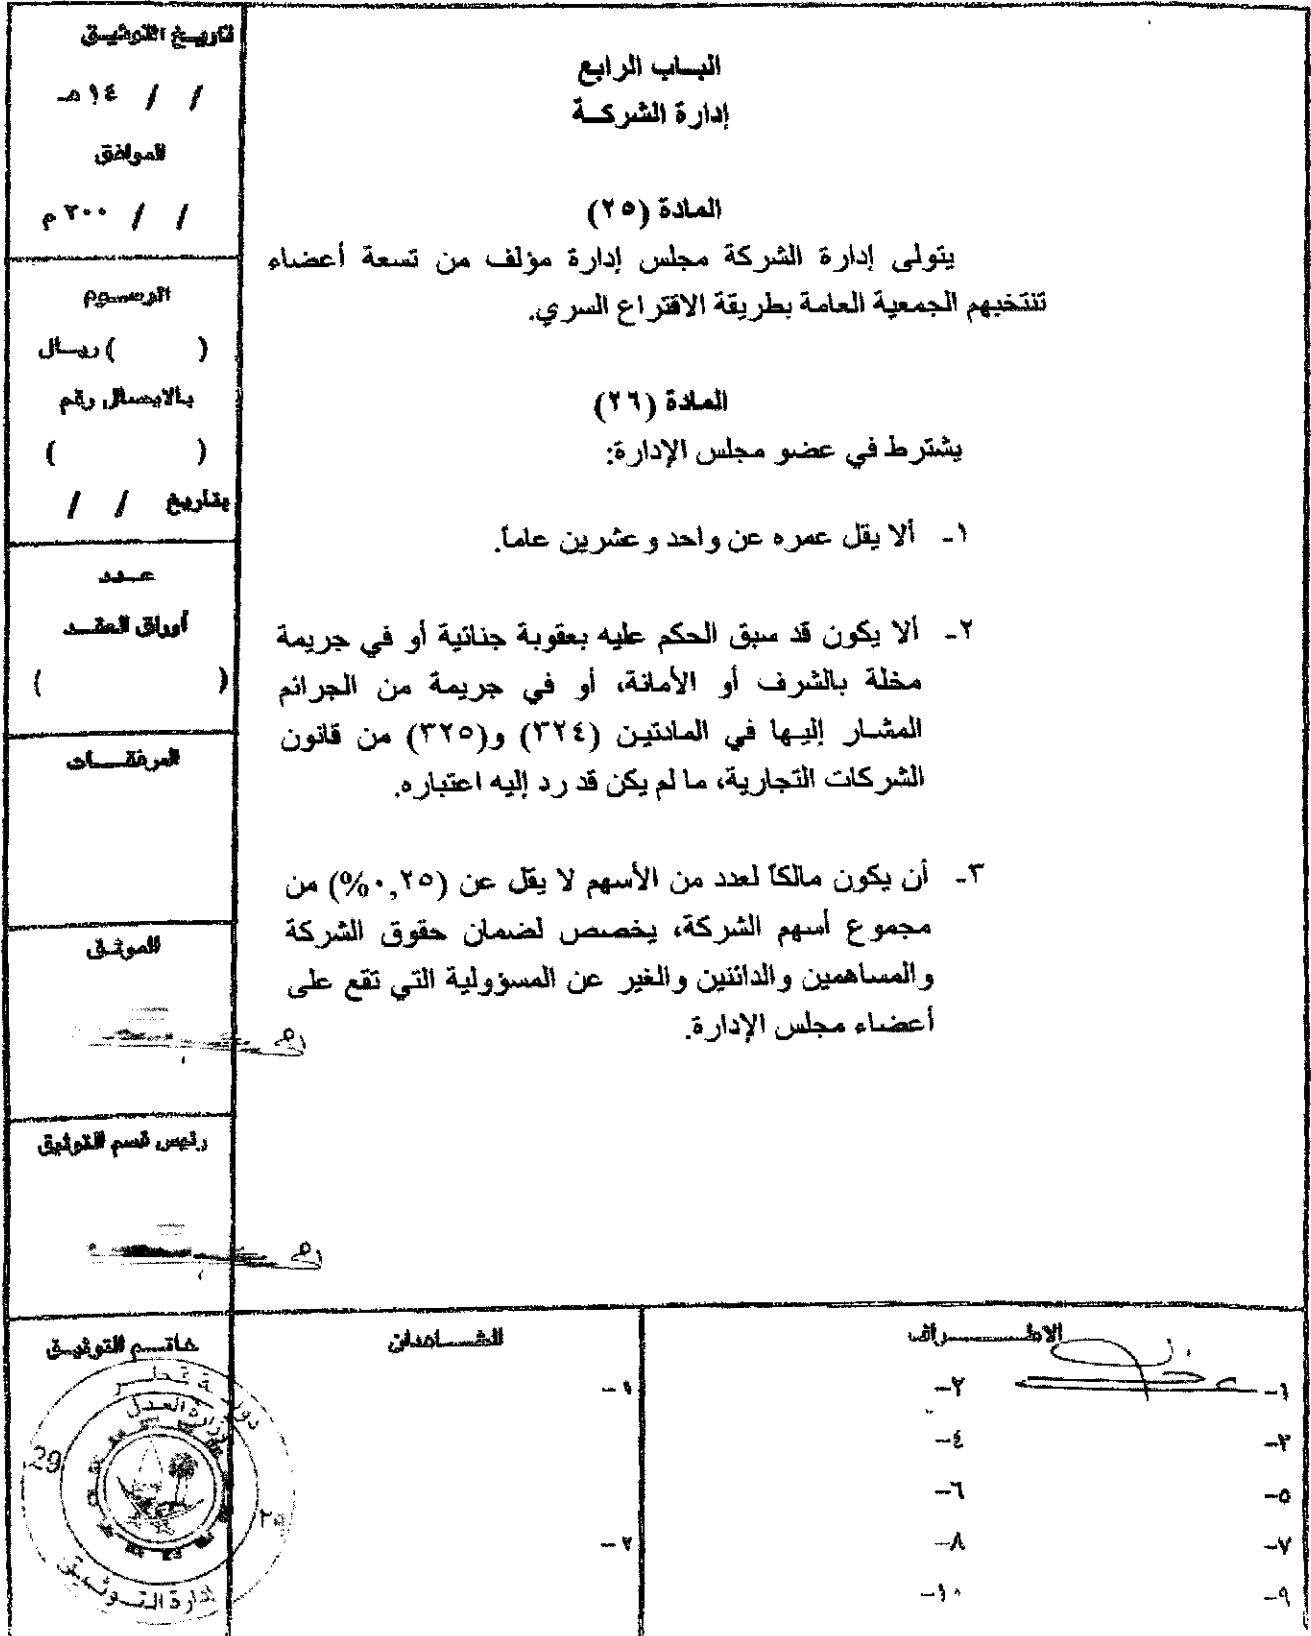 الباب الرابع
إدارة الشركة
المادة (٢٥)
يتولى إدارة الشركة مجلس إدارة مؤلف من تسعة أعضاء
تنتخبهم الجمعية العامة بطريقة الاقتراع السري.
المادة (٢٦)
يشترط في عضو مجلس الإدارة:
١- ألا يقل عمره عن واحد وعشرين عاماً.
٢- ألا يكون قد سبق الحكم عليه بعقوبة جنائية أو في جريمة
مخلة بالشرف أو الأمانة، أو في جريمة من الجرائم
المشار إليها في المادتين (٣٢٤) و(٣٢٥) من قانون
الشركات التجارية، ما لم يكن قد رد إليه اعتباره.
٣- أن يكون مالكاً لعدد من الأسهم لا يقل عن (٠,٢٥%) من
مجموع أسهم الشركة، يخصص لضمان حقوق الشركة
والمساهمين والدائنين والغير عن المسؤولية التي تقع على
أعضاء مجلس الإدارة.
تاريخ التوثيق
/ / ١٤هـ
الموافق
/ / ٢٠٠م
الرسوم
( ) ريال
بالايصال رقم
( )
بتاريخ / /
عدد
أوراق العقد
( )
المرفقات
الموثق
رئيس قسم التوثيق
الاطراف
١- ٢-
٣- ٤-
٥- ٦-
٧- ٨-
٩- ١٠-
الشاهدان
١-
٢-
خاتم التوثيق
دولة قطر
وزارة العدل
29
٢٩
إدارة التوثيق